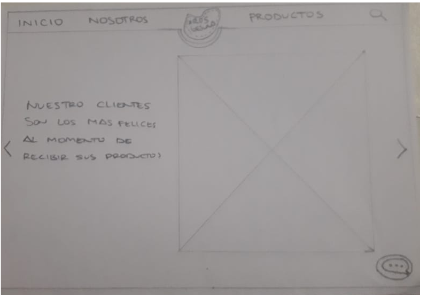 INICIO NOSOTROS PRODUCTOS
NUESTRO CLIENTES
SON LOS MAS FELICES
AL MOMENTO DE
RECIBIR SUS PRODUCTOS